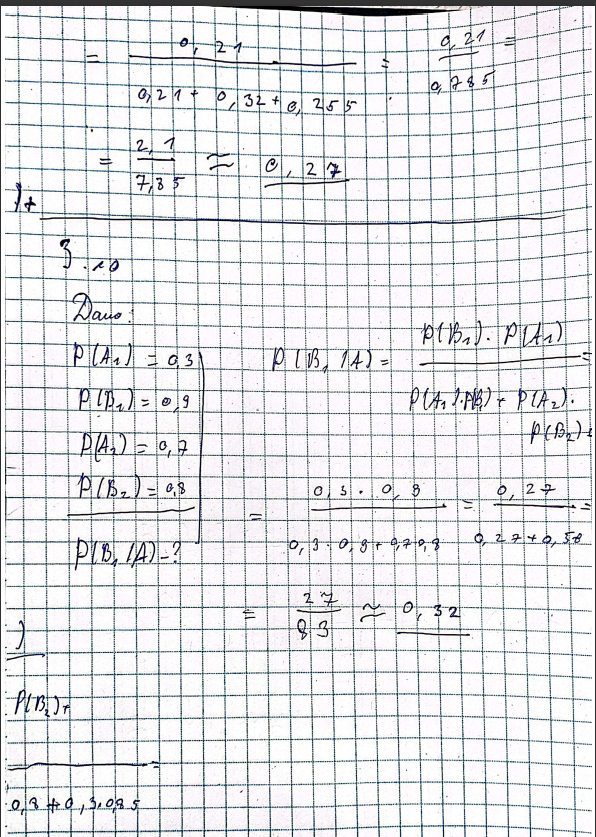 = 0,21 / 0,21 + 0,32 + 0,255 = 0,21 / 0,785 =
= 2,1 / 7,85 ≈ 0,27
)+
3.10
Дано:
P(A₁) = 0,3
P(B₁) = 0,9
P(A₂) = 0,7
P(B₂) = 0,8
P(B₁/A) - ?
P(B₁/A) = P(B₁) · P(A₁) / P(A₁)·P(B₁) + P(A₂) · P(B₂) =
= 0,3 · 0,9 / 0,3 · 0,9 + 0,7 0,8 = 0,27 / 0,27 + 0,56 =
= 27 / 83 ≈ 0,32
)
P(B₂)+
=
0,8 + 0,3·0,85